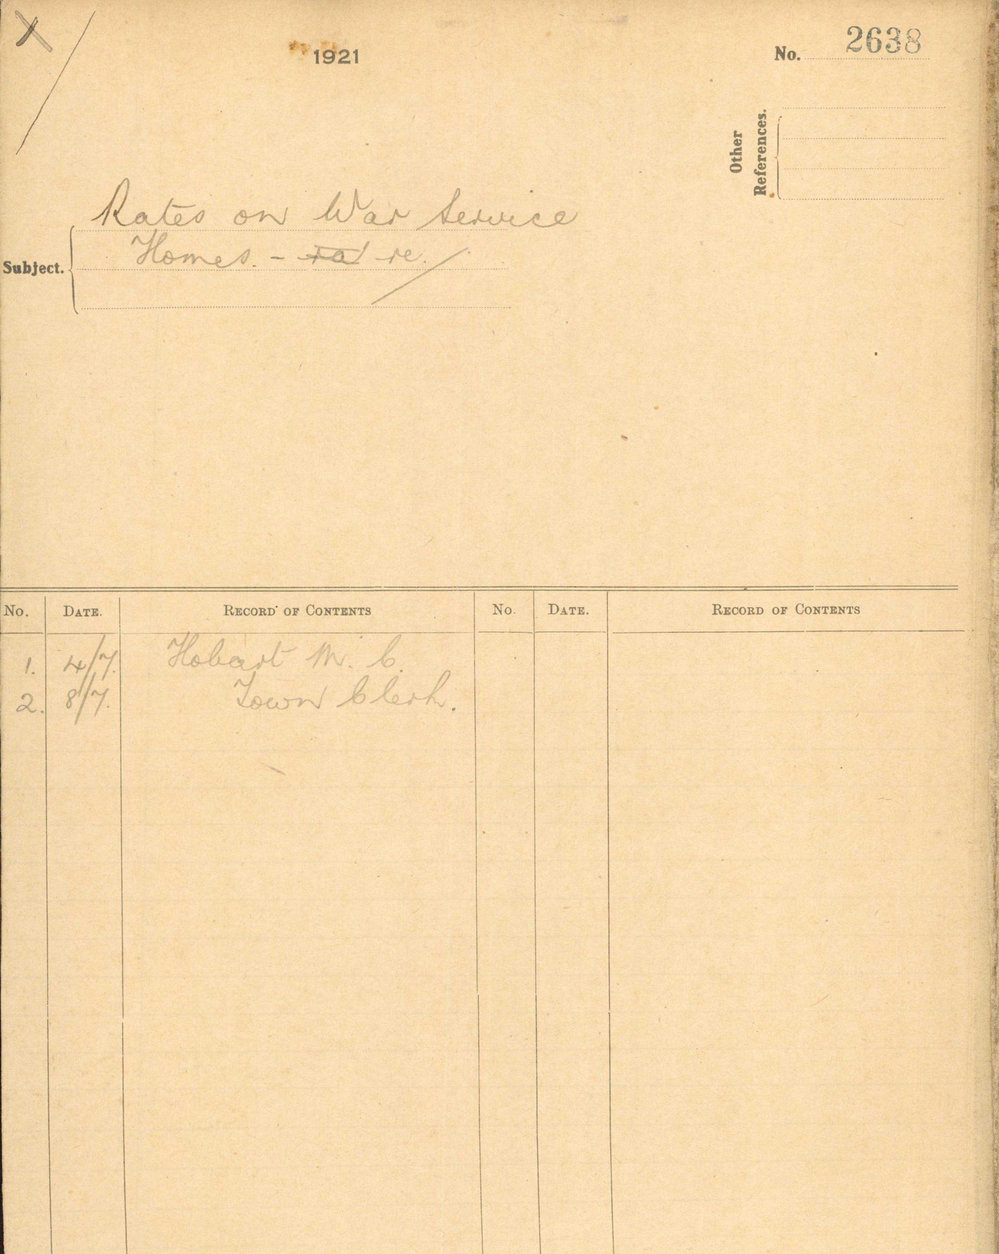 1921
No. 2638
Other
References.
Rates on War Service
Subject. Homes. - ra re.
No. DATE. RECORD OF CONTENTS No. DATE. RECORD OF CONTENTS
1. 4/7. Hobart M. C.
2. 8/7. Town Clerk.